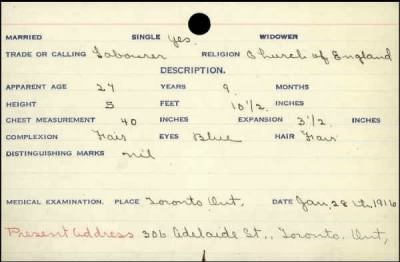 MARRIED SINGLE Yes. WIDOWER
TRADE OR CALLING Labourer RELIGION Church of England
DESCRIPTION.
APPARENT AGE 27 YEARS 9 MONTHS
HEIGHT 5 FEET 10 1/2 INCHES
CHEST MEASUREMENT 40 INCHES EXPANSION 3 1/2 INCHES
COMPLEXION Fair EYES Blue HAIR Fair
DISTINGUISHING MARKS nil
MEDICAL EXAMINATION. PLACE Toronto, Ont. DATE Jan. 28th, 1916
Present Address 306 Adelaide St., Toronto. Ont,